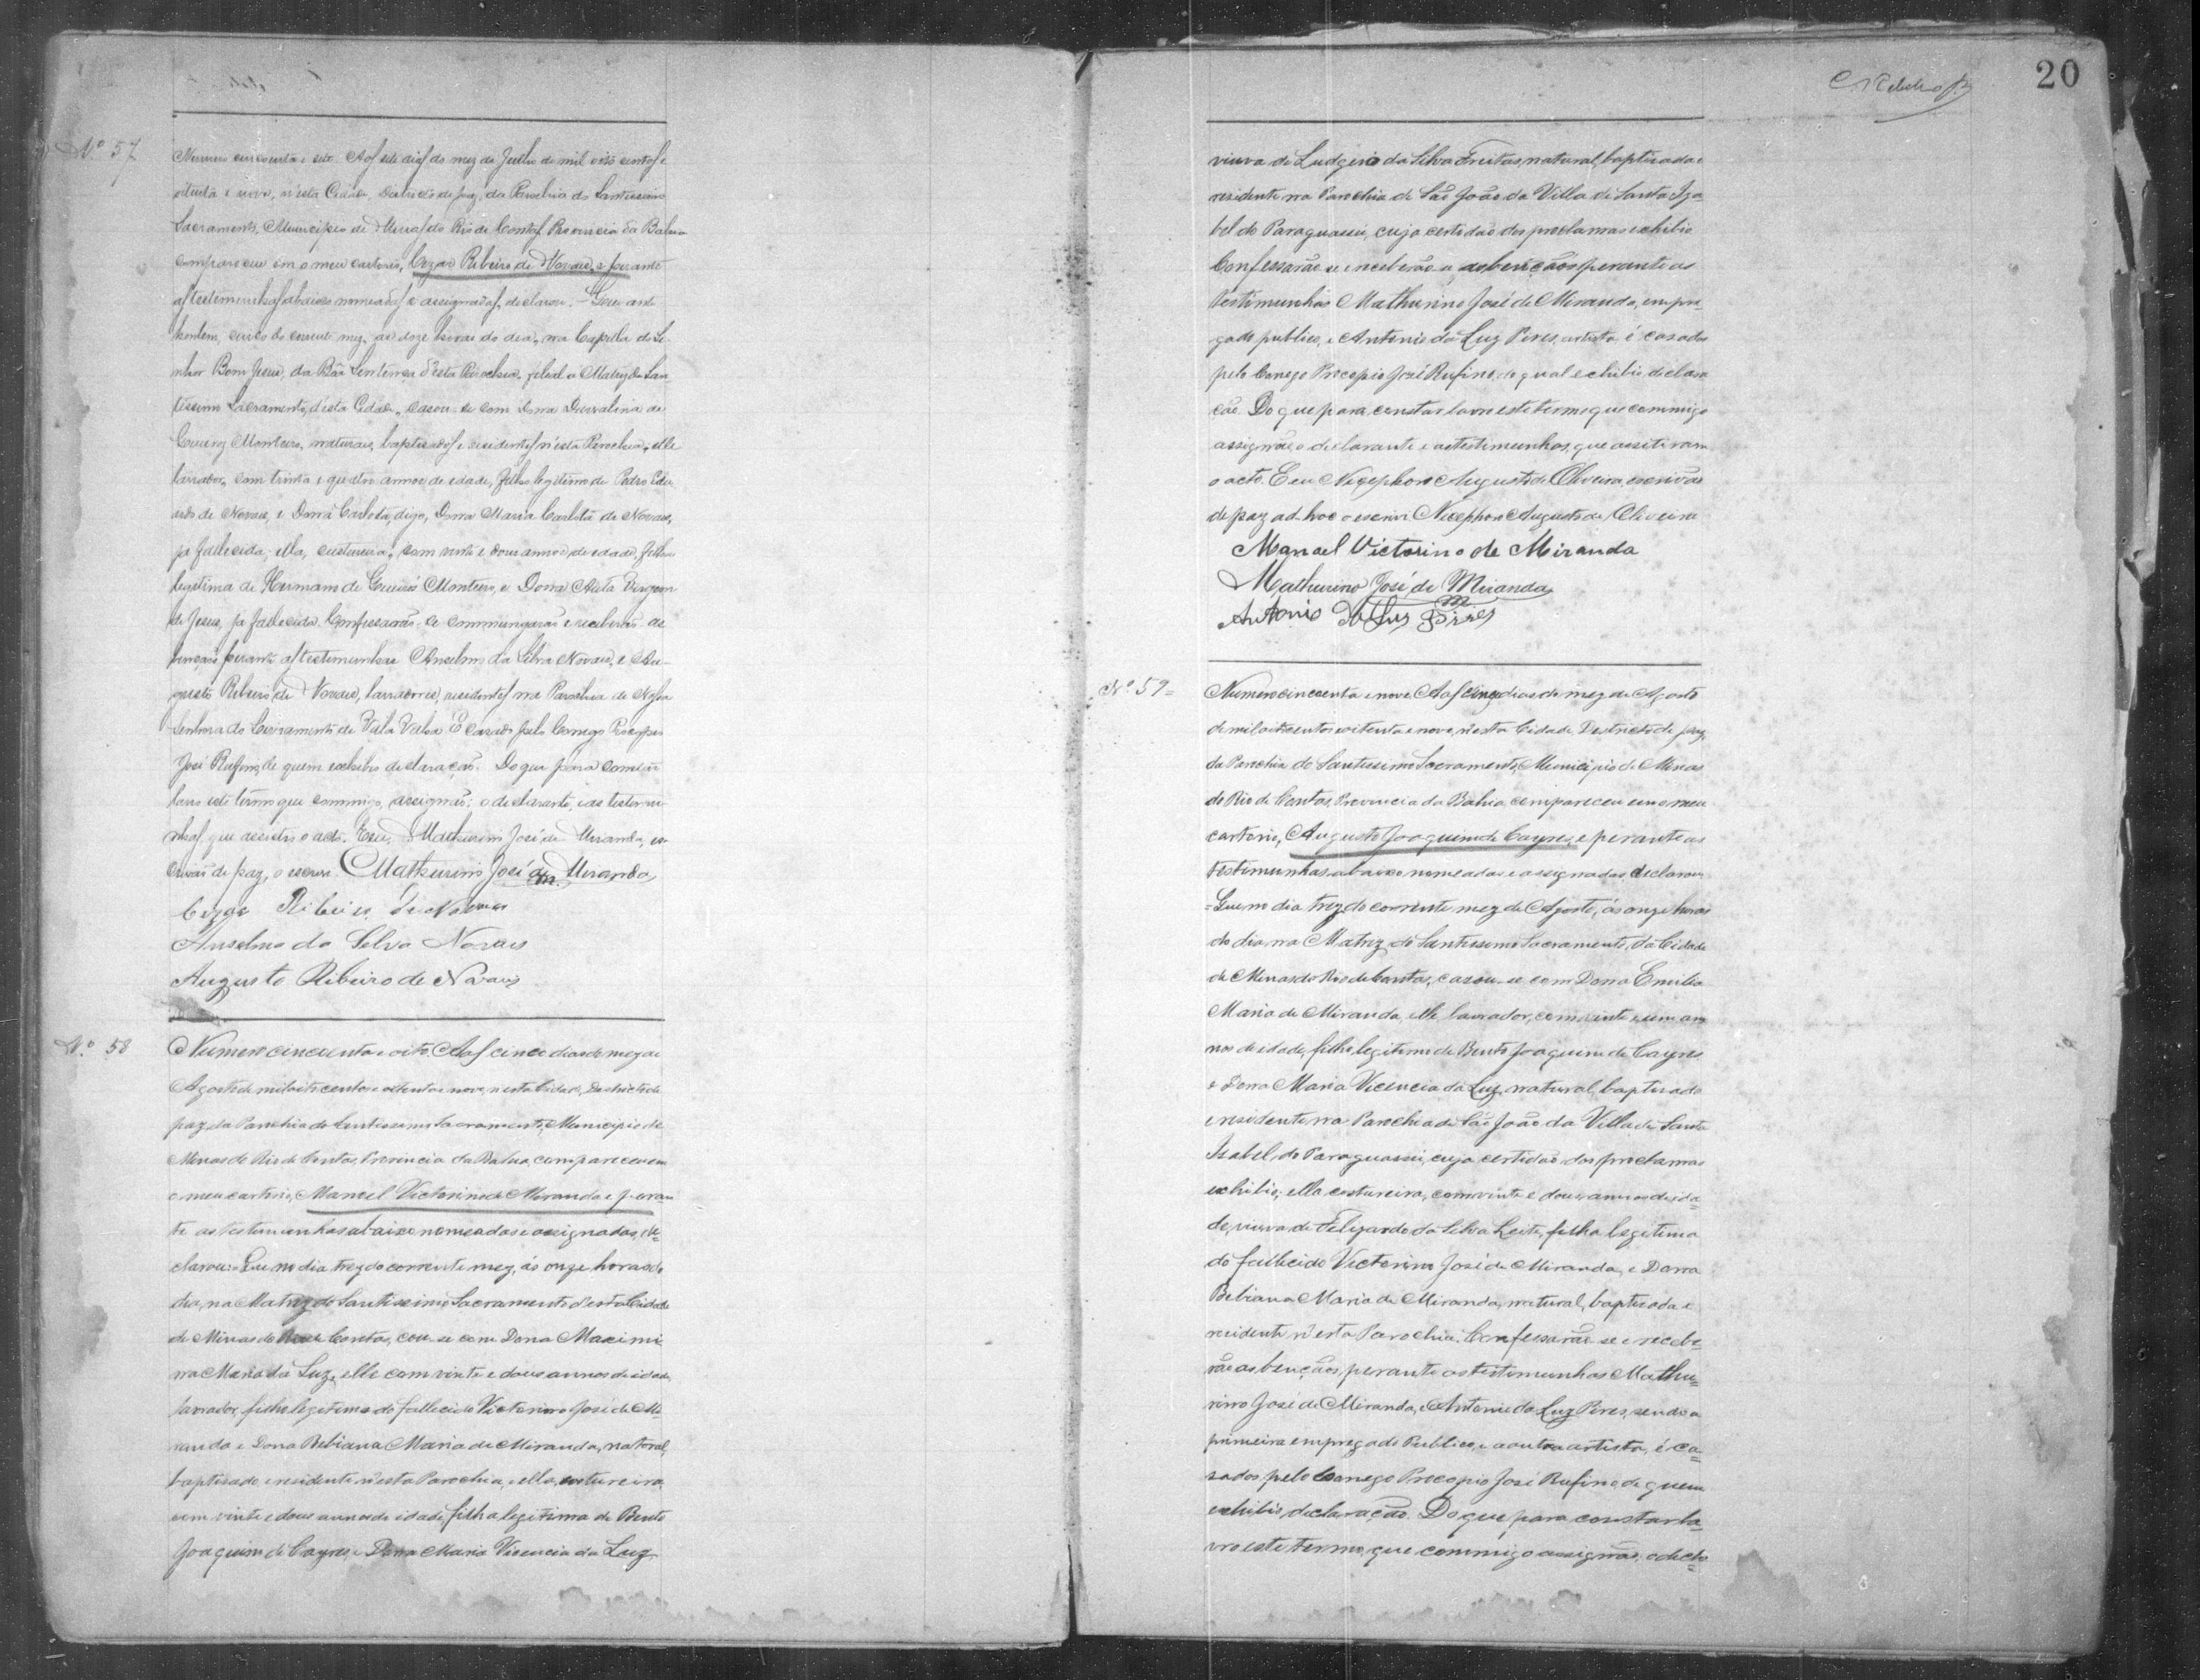 Nº 57
Numero cincoenta e sete. Aos sete dias do mez de Julho de mil oito centos e
oitenta e nove, n'esta Cidade, Districto de paz da Parochia do Santissimo
Sacramento, Municipio de Minas do Rio de Contas, Provincia da Bahia
compareceu em o meu cartorio, Cezar Ribeiro de Novaes, e perante
as testemunhas abaixo nomeadas e assignadas, declarou: - Que ante
hontem, cinco do corrente mez, as doze horas do dia, na Capella do Se-
nhor Bom Jesus, da Bôa Sentença d'esta Parochia, filial a Matriz do San
tissimo Sacramento, d'esta Cidade, casou-se com Dona Durvalina de
Monteiro, naturaes, baptisados e residentes n'esta Parochia, elle
lavrador, com trinta e quatro annos de idade, filho legitimo de Pedro
de Novaes, e Donna Carlota, digo, Donna Maria Carlota de Novaes,
ja fallecida, ella, costureira, com vinte e dous annos de idade, filha
legitima de Hermano de Monteiro, e Donna
de Jesus, ja fallecida. Confessarão-se commungarão e receberão as
bençãos perante as testemunhas Anselmo da Silva Novaes, e Au-
gusto Ribeiro de Novaes, lavradores, residentes na Parochia de Nossa
Senhora do Livramento de Villa Velha. É casado pelo Conego Procopio
José Rufino, de quem exhibio declaração. Do que para constar
lavro este termo que commigo, assignão; o declarante, e as testemu-
nhas que assistio o acto. Eu, Mathurino José de Miranda, es-
crivão de paz, o escrevi. Mathurino José de Miranda
Cezar Ribeiro de Novaes
Anselmo da Silva Novais
Augusto Ribeiro de Novais
Nº 58
Numero cincoenta e oito. Aos cinco dias do mez de
Agosto de mil oito centos e oitenta e nove, n'esta Cidade, Districto de
paz, da Parochia do Santissimo Sacramento, Municipio de
Minas do Rio de Contas, Provincia da Bahia, compareceu em
o meu cartorio, Manoel Victorino de Miranda e peran
te as testemunhas abaixo nomeadas e assignadas, de=
clarou:= Que no dia trez do corrente mez, ás onze horas do
dia, na Matriz do Santissimo Sacramento d'esta Cidade
de Minas do Rio de Contas, cou-se com Dona Maximi
na Maria da Luz, elle com vinte e dous annos de idade,
lavrador, filho legitimo do fallecido Victorino José de Mi-
randa e Dona Bebiana Maria de Miranda, natural,
baptisado e residente n'esta Parochia, e ella, costureira,
com vinte e dous annos de idade, filha legitima de Bento
Joaquim de Cayres, e Dona Maria Vicencia da Luz
20
viuva de Ludgero da Silva Freitas, natural, baptisada e
residente na Parochia de São João da Villa de Santa Iza-
bel do Paraguassú, cuja certidão dos proclamas exhibio
Confessarão-se e receberão a as bençãos perante as
testimunhas Mathurino José de Miranda, empre-
gado publico, e Antonio da Luz Pires, artista é casados
pelo Conego Procopio José Rufino, do qual exhibio declara
ção. Do que para constar lavro este termo que commigo
assignão o declarante e as testimunhas, que assitiram
o acto. E eu Nicephoro Augusto de Oliveira, escrivão
de paz ad-hoc o escrivi Nicephoro Augusto de Oliveira
Manoel Victorino de Miranda
Mathurino José de Miranda
Antonio da Luz Pires
Nº 59=
Numero cincoenta e nove. Aos cinco dias do mez de Agosto
de mil oitocentos e oitenta e nove, n'esta Cidade, Destricto de paz,
da Parochia do Santissimo Sacramento, Municipio de Minas
do Rio de Contas, Provincia da Bahia, compareceu em o meu
cartorio, Augusto Joaquim de Cayres, e perante as
testimunhas abaixo nomeadas e assignadas, declarou
=Que no dia trez do corrente mez de Agosto, ás onze horas
do dia, na Matriz do Santissimo Sacramento, da Cidade
de Minas do Rio de Contas, casou-se com Dona Emilia
Maria de Miranda, elle lavrador, com vinte e um an
nos de idade, filho legitimo de Bento Joaquim de Cayres
e Dona Maria Vicencia da Luz, natural, baptisado
e residente na Parochia de São João da Villa de Santa
Isabel, do Paraguassú, cuja certidão dos proclamas
exhibio; ella costureira, com vinte e dous annos de ida=
de, viuva de Felizardo da Silva Leite, filha legitima
do fallecido Victorino José de Miranda, e Dona
Bebiana Maria de Miranda, natural, baptisada e
residente n'esta Parochia. Confessarão-se e recebe=
rão as bençãos, perante as testimunhas Mathu=
rino José de Miranda, e Antonio da Luz Pires, sendo a
primeira empregado Publico, e a outra artista, é ca=
sados, pelo Conego Procopio José Rufino, de quem
exhibio declaração. Do que para constar la=
vro este termo, que commigo assignão, o decla=